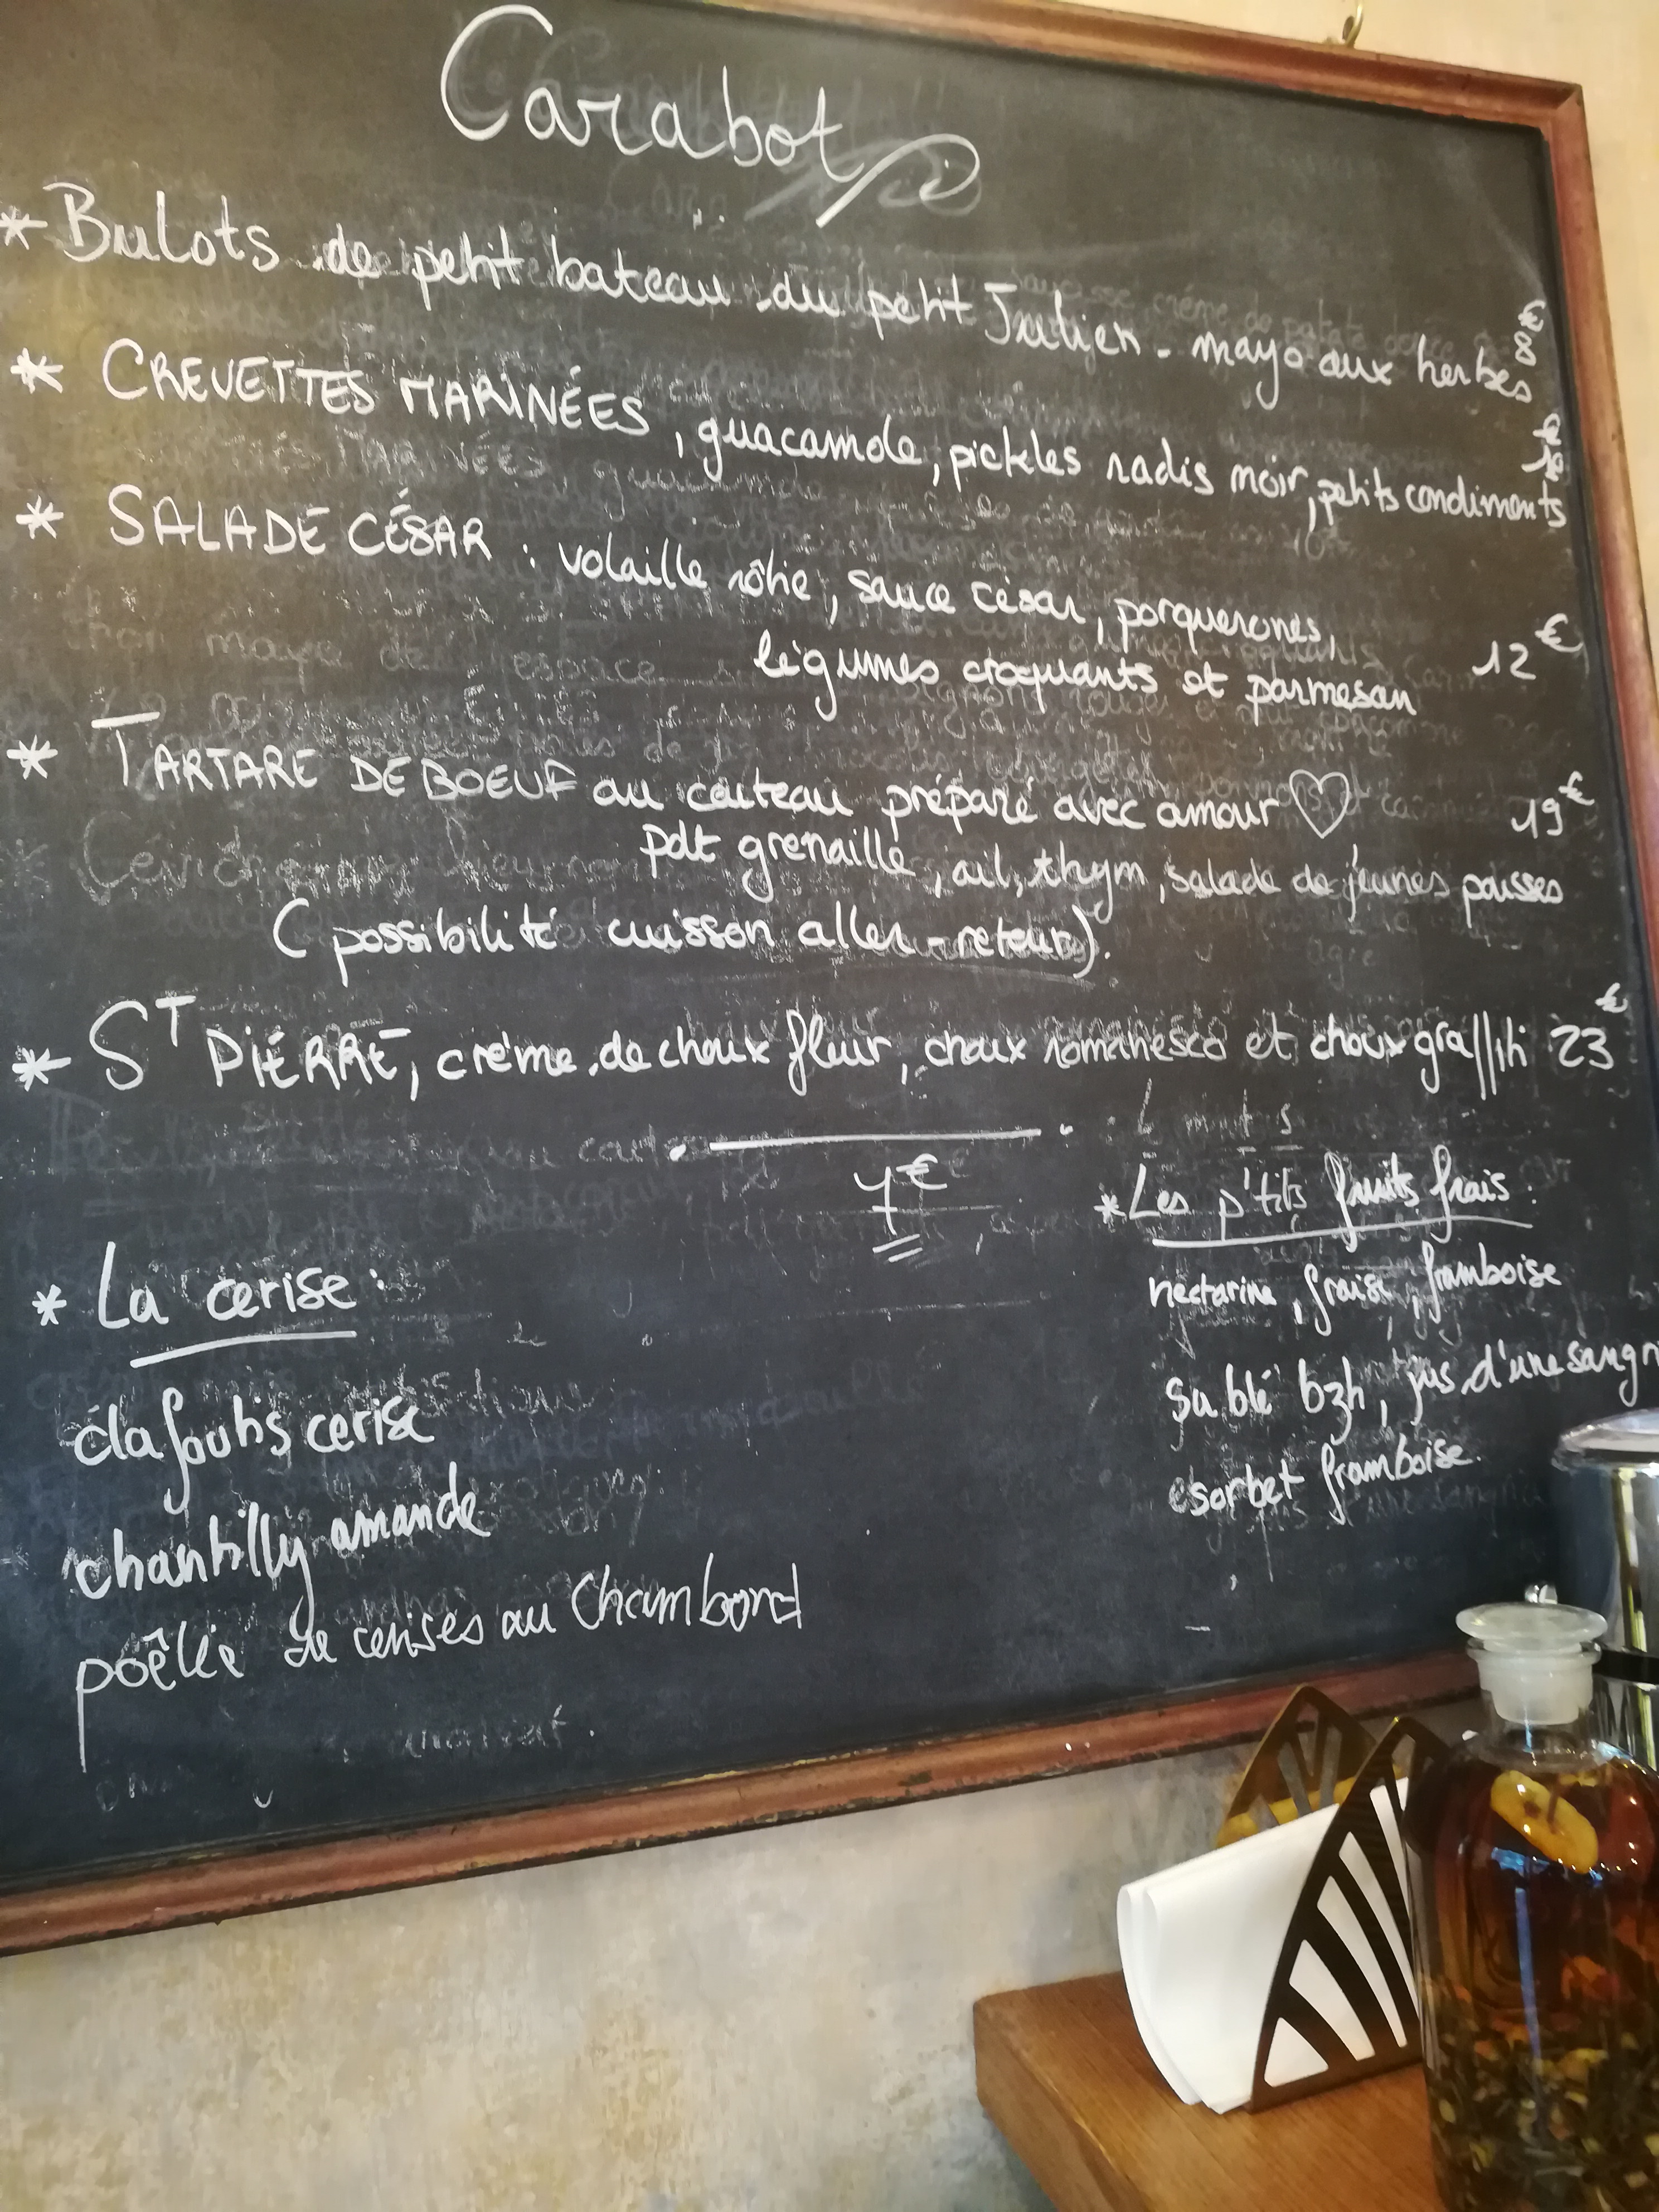 Carabot
* Bulots de petit bateau du petit Julien - mayo aux herbes 8€
* CREVETTES MARINÉES, guacamole, pickles radis noir, petits condiments
* SALADE CÉSAR : volaille rôtie, sauce césar, porquerones,
légumes croquants et parmesan 12€
* TARTARE DE BOEUF au couteau préparé avec amour ♡ 19€
pdt grenaille, ail, thym, salade de jeunes pousses
(possibilité cuisson aller-retour).
* ST PIERRE, crème de choux fleur, choux romanesco et choux graffiti 23€
7€
* La cerise :
clafoutis cerise
chantilly amande
poêlée de cerises au Chambord
* Les p'tits fruits frais :
nectarine, fraise, framboise
sablé bzh, jus d'une sangri
sorbet framboise.